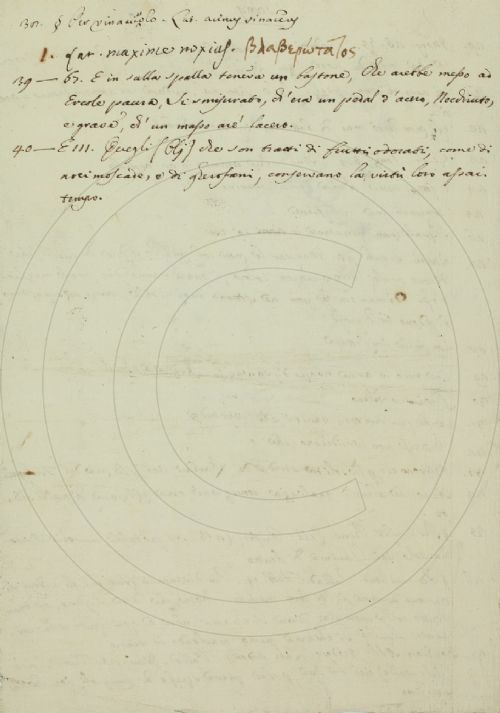 301. § Per vinacciolo. Lat. acinus vinaceus
1. Lat. maxime noxius. βλαβερώτατος
39 — 67. E in sulla spalla teneva un bastone, Che arebbe messo ad
Ercole paura, Sì smisurato, ch'era un pedal d'acero, Nocchiuto,
e grave, ch'un masso are' lacero.
40 — E 111. Quegli [Olj] che son tratti di frutti odorati, come di
noci moscade, e di gherofani, conservano la virtù loro assai
tempo.